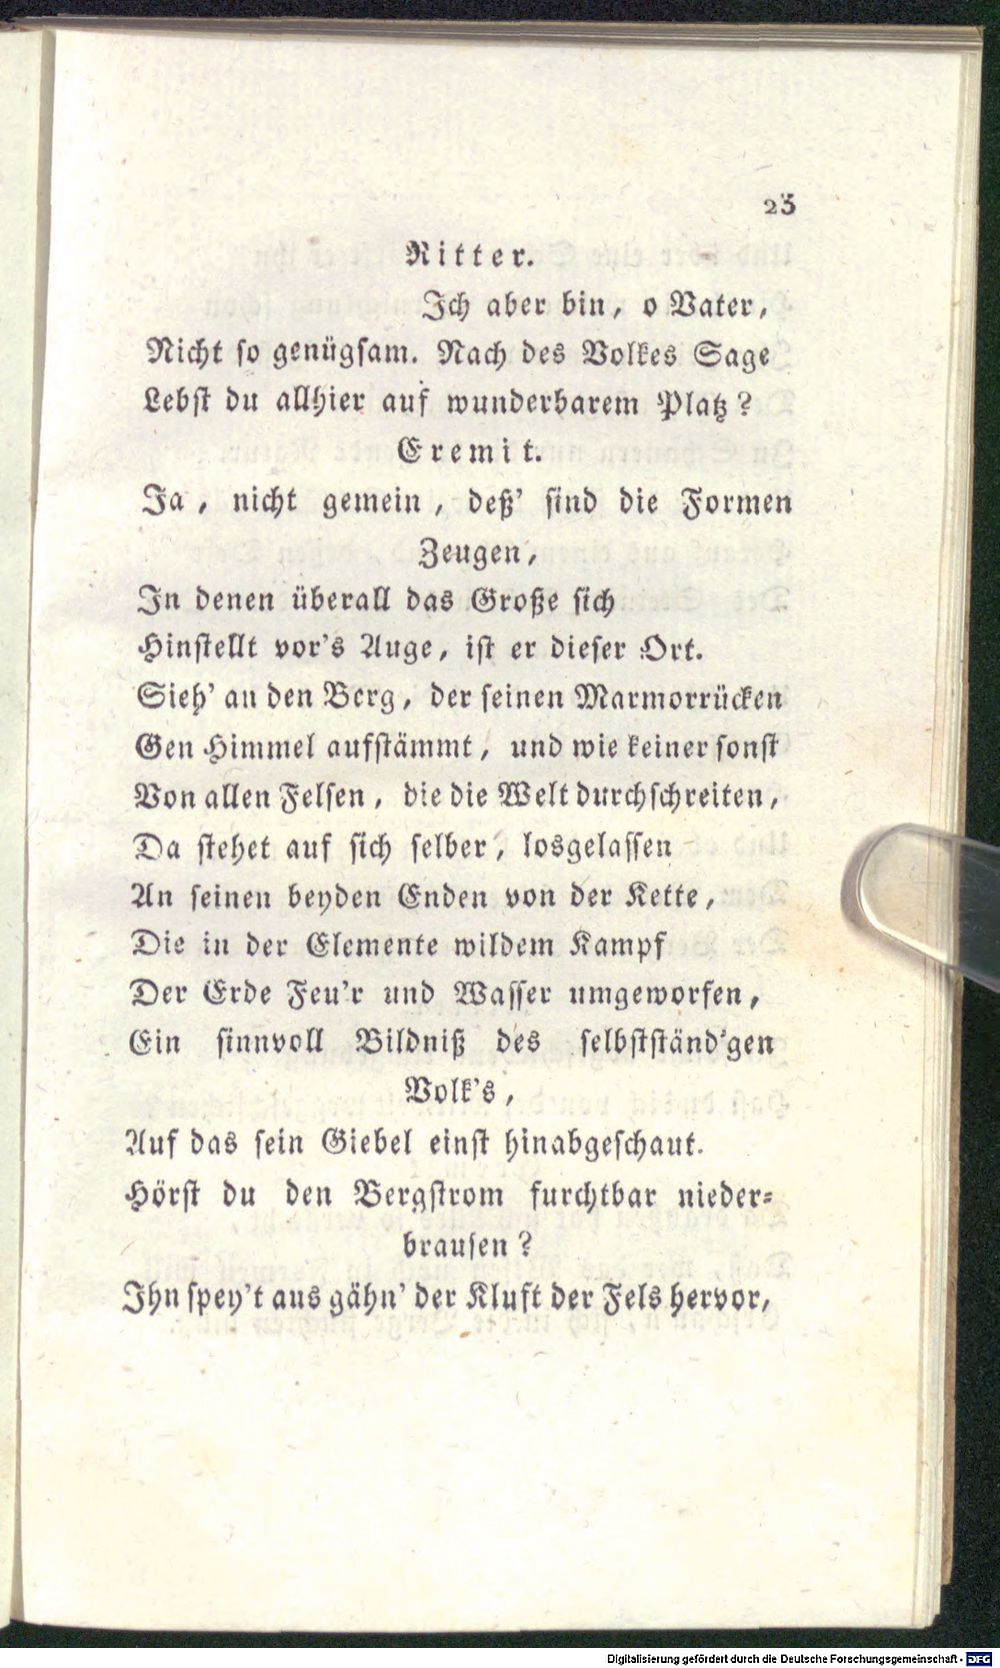 23
Ritter.
Ich aber bin, o Vater,
Nicht so genügsam. Nach des Volkes Sage
Lebst du allhier auf wunderbarem Platz?
Eremit.
Ja, nicht gemein, deß' sind die Formen
Zeugen,
In denen überall das Große sich
Hinstellt vor's Auge, ist er dieser Ort.
Sieh' an den Berg, der seinen Marmorrücken
Gen Himmel aufstämmt, und wie keiner sonst
Von allen Felsen, die die Welt durchschreiten,
Da stehet auf sich selber, losgelassen
An seinen beyden Enden von der Kette,
Die in der Elemente wildem Kampf
Der Erde Feu'r und Wasser umgeworfen,
Ein sinnvoll Bildniß des selbstständ'gen
Volk's,
Auf das sein Giebel einst hinabgeschaut.
Hörst du den Bergstrom furchtbar nieder-
brausen?
Ihn spey't aus gähn' der Kluft der Fels hervor,
Digitalisierung gefördert durch die Deutsche Forschungsgemeinschaft - DFG